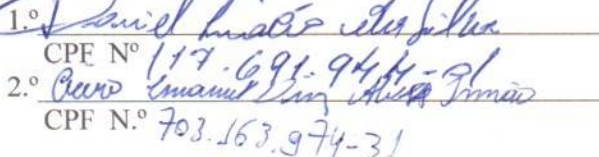 1.º Daniel Inácio da Silva
CPF Nº 117.691.944-
2.º Cícero Emanuel Diniz Irmão
CPF N.º 703.163.974-31